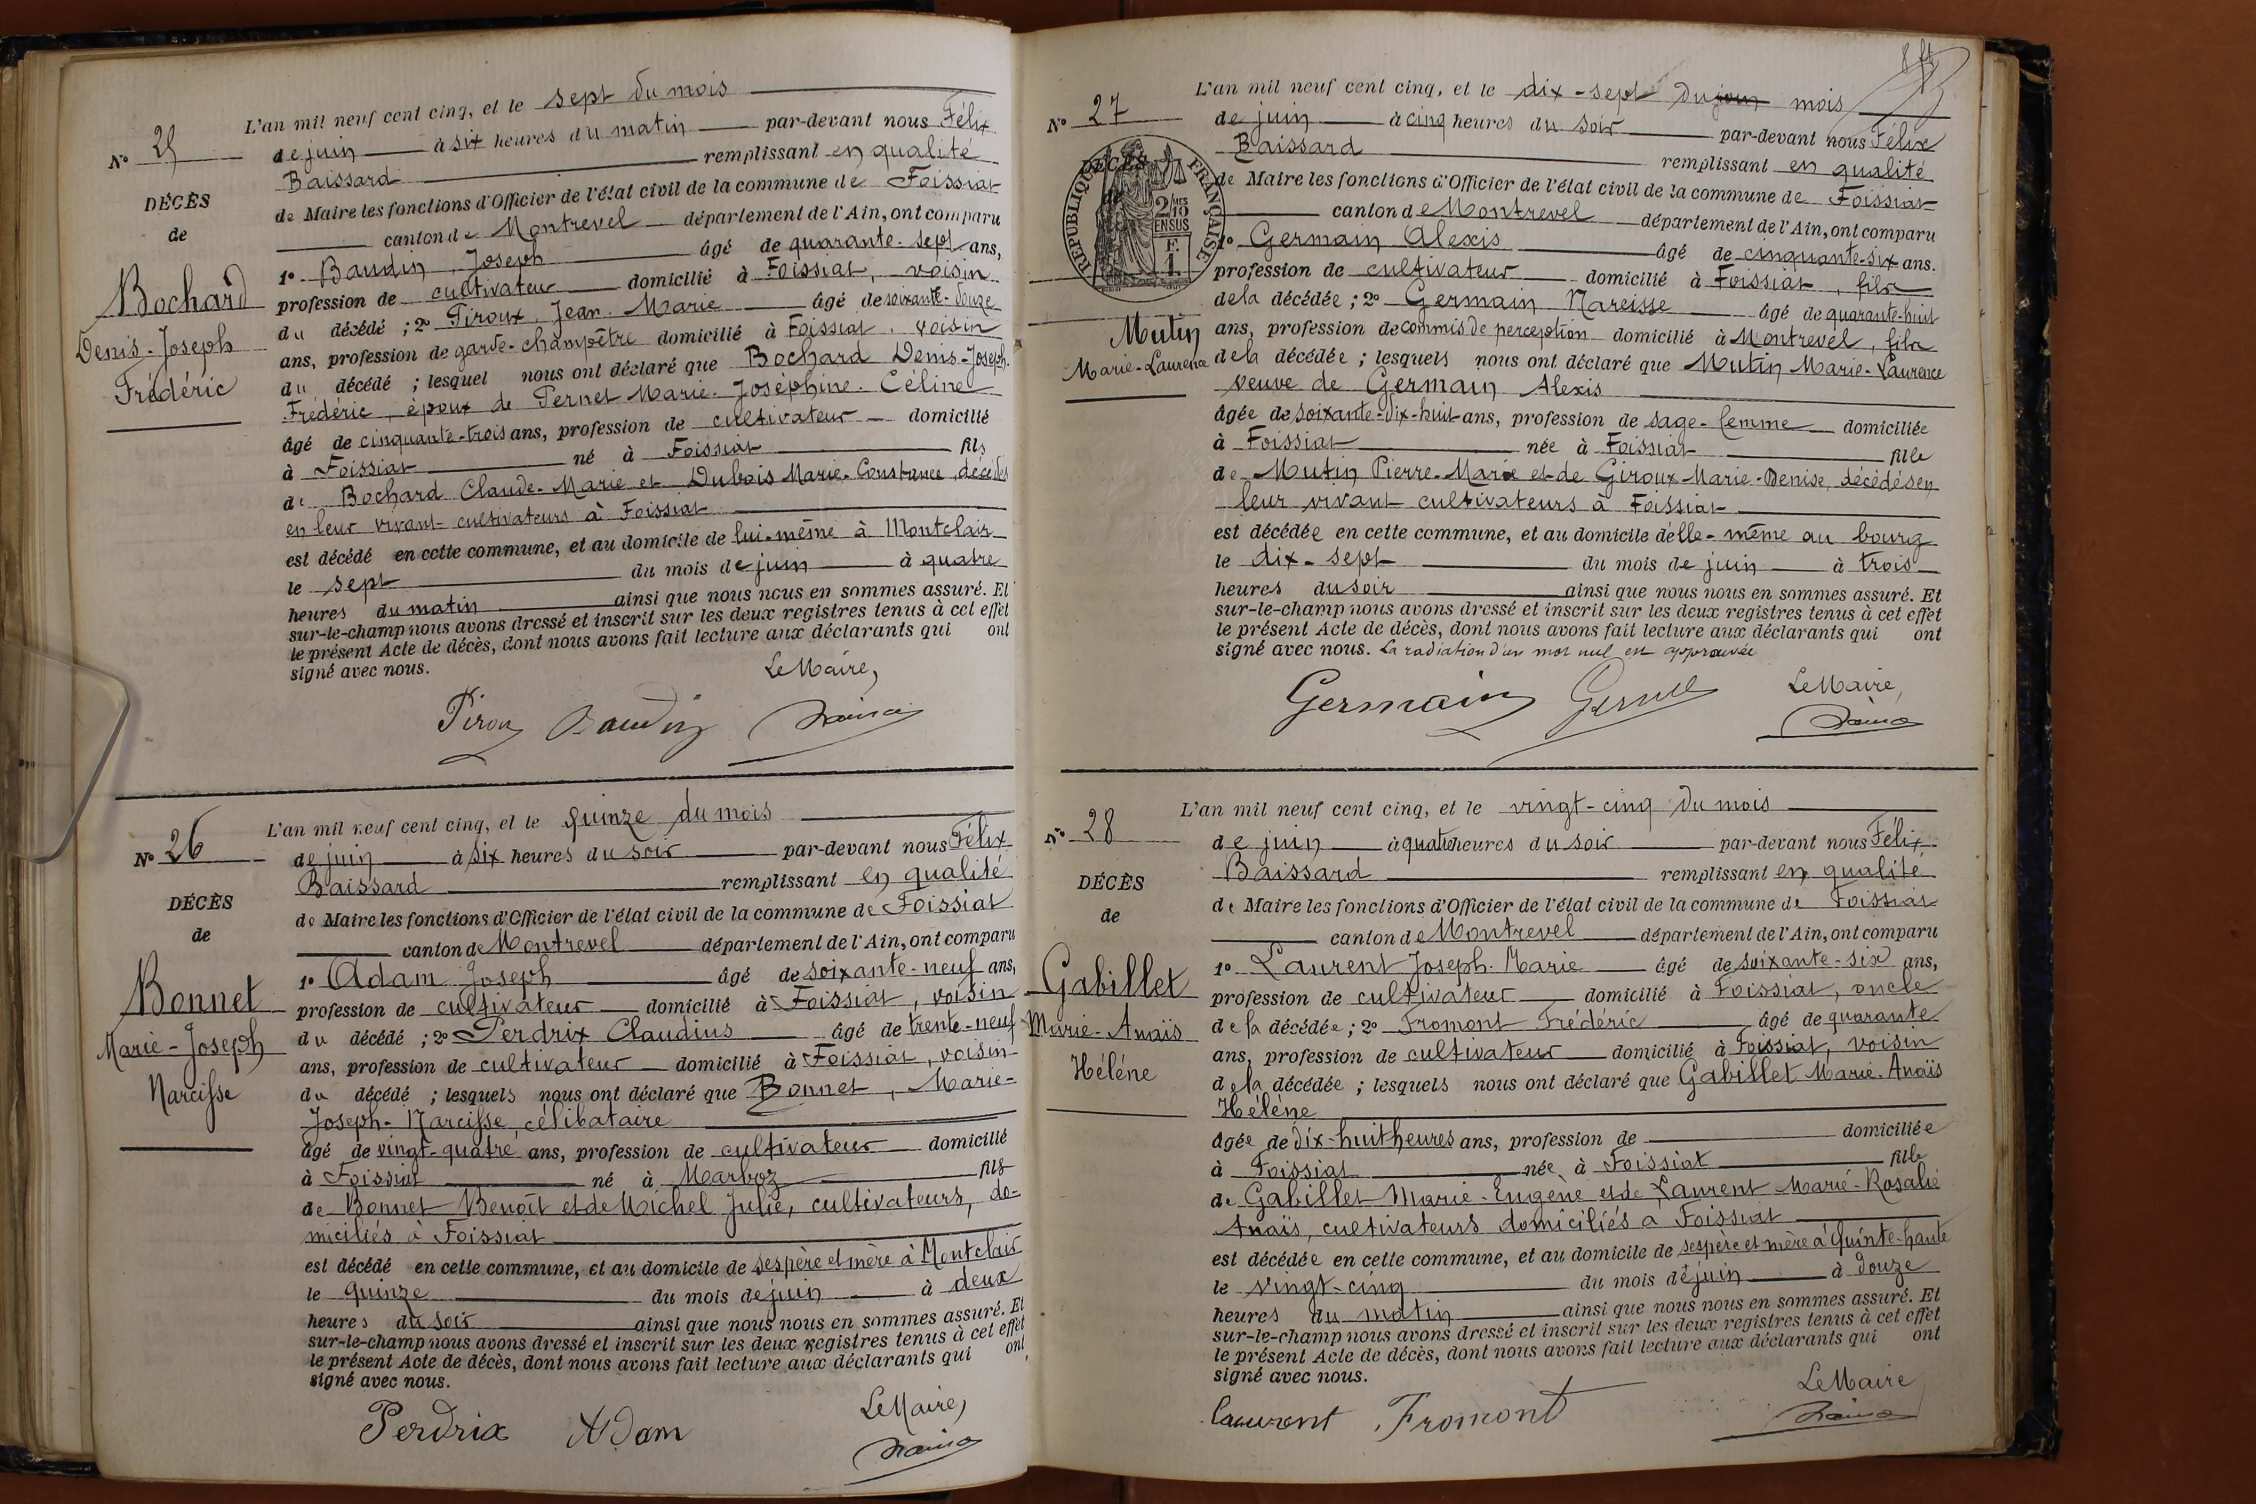 L'an mil neuf cent cinq, et le sept du mois
N° 25
de juin à six heures du matin par-devant nous Félix
Baissard remplissant en qualité
DÉCÈS
de Maire les fonctions d'Officier de l'état civil de la commune de Foissiat
de
canton de Montrevel département de l'Ain, ont comparu
1° Baudin, Joseph âgé de quarante-sept ans,
Bochard
profession de cultivateur domicilié à Foissiat, voisin
du décédé ; 2° Piroux, Jean-Marie âgé de soixante-douze
Denis-Joseph
ans, profession de garde-champêtre domicilié à Foissiat, voisin
Frédéric
du décédé ; lesquel nous ont déclaré que Bochard Denis-Joseph-
Frédéric, époux de Pernet Marie-Joséphine-Céline
âgé de cinquante-trois ans, profession de cultivateur domicilié
à Foissiat né à Foissiat fils
de Bochard Claude-Marie et Dubois Marie-Constance, décédés
en leur vivant cultivateurs à Foissiat
est décédé en cette commune, et au domicile de lui-même à Montclair
le sept du mois de juin à quatre
heures du matin ainsi que nous nous en sommes assuré. Et
sur-le-champ nous avons dressé et inscrit sur les deux registres tenus à cet effet
le présent Acte de décès, dont nous avons fait lecture aux déclarants qui ont
signé avec nous.
Le Maire,
Piroux Baudin
L'an mil neuf cent cinq, et le quinze du mois
N° 26
de juin à six heures du soir par-devant nous Félix
Baissard remplissant en qualité
DÉCÈS
de Maire les fonctions d'Officier de l'état civil de la commune de Foissiat
de
canton de Montrevel département de l'Ain, ont comparu
1° Adam Joseph âgé de soixante-neuf ans,
Bonnet
profession de cultivateur domicilié à Foissiat, voisin
du décédé ; 2° Perdrix Claudius âgé de trente-neuf
Marie-Joseph
ans, profession de cultivateur domicilié à Foissiat, voisin
Narcisse
du décédé ; lesquels nous ont déclaré que Bonnet, Marie-
Joseph-Narcisse, célibataire
âgé de vingt-quatre ans, profession de cultivateur domicilié
à Foissiat né à Marboz fils
de Bonnet Benoît et de Michel Julie, cultivateurs, do-
miciliés à Foissiat
est décédé en cette commune, et au domicile de ses père et mère à Montclair
le quinze du mois de juin à deux
heures du soir ainsi que nous nous en sommes assuré. Et
sur-le-champ nous avons dressé et inscrit sur les deux registres tenus à cet effet
le présent Acte de décès, dont nous avons fait lecture aux déclarants qui ont
signé avec nous.
Le Maire,
Perdrix Adam
L'an mil neuf cent cinq, et le dix-sept du juin mois
N° 27
de juin à cinq heures du soir par-devant nous Félix
Baissard remplissant en qualité
DÉCÈS
RÉPUBLIQUE FRANÇAISE
2/10 MES
EN SUS
F. 1.
de Maire les fonctions d'Officier de l'état civil de la commune de Foissiat
canton de Montrevel département de l'Ain, ont comparu
1° Germain Alexis âgé de cinquante-six ans.
profession de cultivateur domicilié à Foissiat, fils
de la décédée ; 2° Germain Narcisse âgé de quarante-huit
Mutin
ans, profession de commis de perception domicilié à Montrevel, fils
Marie-Laurence
de la décédée ; lesquels nous ont déclaré que Mutin Marie-Laurence
veuve de Germain Alexis
âgée de soixante-dix-huit ans, profession de sage-femme domiciliée
à Foissiat née à Foissiat fille
de Mutin Pierre-Marie et de Giroux Marie-Denise, décédés en
leur vivant cultivateurs à Foissiat
est décédée en cette commune, et au domicile d'elle-même au bourg
le dix-sept du mois de juin à trois
heures du soir ainsi que nous nous en sommes assuré. Et
sur-le-champ nous avons dressé et inscrit sur les deux registres tenus à cet effet
le présent Acte de décès, dont nous avons fait lecture aux déclarants qui ont
signé avec nous. La radiation d'un mot nul est approuvée
Le Maire,
Germain
L'an mil neuf cent cinq, et le vingt-cinq du mois
N° 28
de juin à quatre heures du soir par-devant nous Félix
Baissard remplissant en qualité
DÉCÈS
de Maire les fonctions d'Officier de l'état civil de la commune de Foissiat
de
canton de Montrevel département de l'Ain, ont comparu
1° Laurent Joseph-Marie âgé de soixante-six ans,
Gabillet
profession de cultivateur domicilié à Foissiat, oncle
Marie-Anaïs
de la décédée ; 2° Fromont Frédéric âgé de quarante
ans, profession de cultivateur domicilié à Foissiat, voisin
Hélène
de la décédée ; lesquels nous ont déclaré que Gabillet Marie-Anaïs
Hélène
âgée de dix-huit heures ans, profession de domiciliée
à Foissiat née à Foissiat fille
de Gabillet Marie-Eugène et de Laurent Marie-Rosalie
Anaïs, cultivateurs domiciliés à Foissiat
est décédée en cette commune, et au domicile de ses père et mère à Quinte-haute
le vingt-cinq du mois de juin à douze
heures du matin ainsi que nous nous en sommes assuré. Et
sur-le-champ nous avons dressé et inscrit sur les deux registres tenus à cet effet
le présent Acte de décès, dont nous avons fait lecture aux déclarants qui ont
signé avec nous.
Le Maire
Laurent Fromont